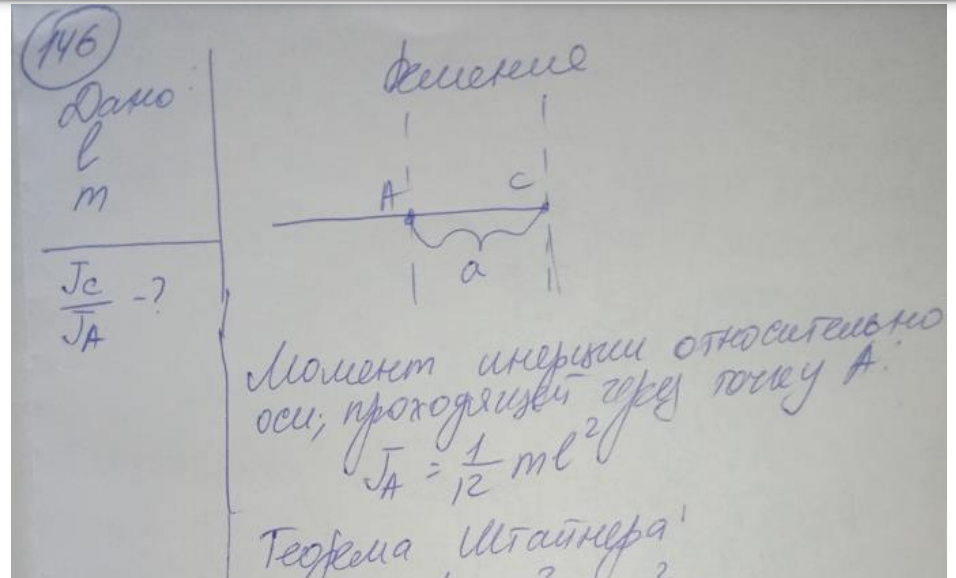 146
Дано
l
m
Jc/JA -?
Решение
A
C
a
Момент инерции относительно
оси, проходящей через точку A:
JA = 1/12 ml²
Теорема Штайнера: